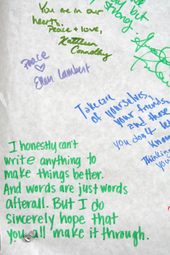 You are in our
hearts.
Peace + love,
Kathleen
Connolly
Peace
Ellen Lambert
Take care
of yourselves,
your friends,
and those
you don't
know
Thinking
you
I honestly can't
write anything to
make things better.
And words are just words
afterall. But I do
sincerely hope that
you all make it through.